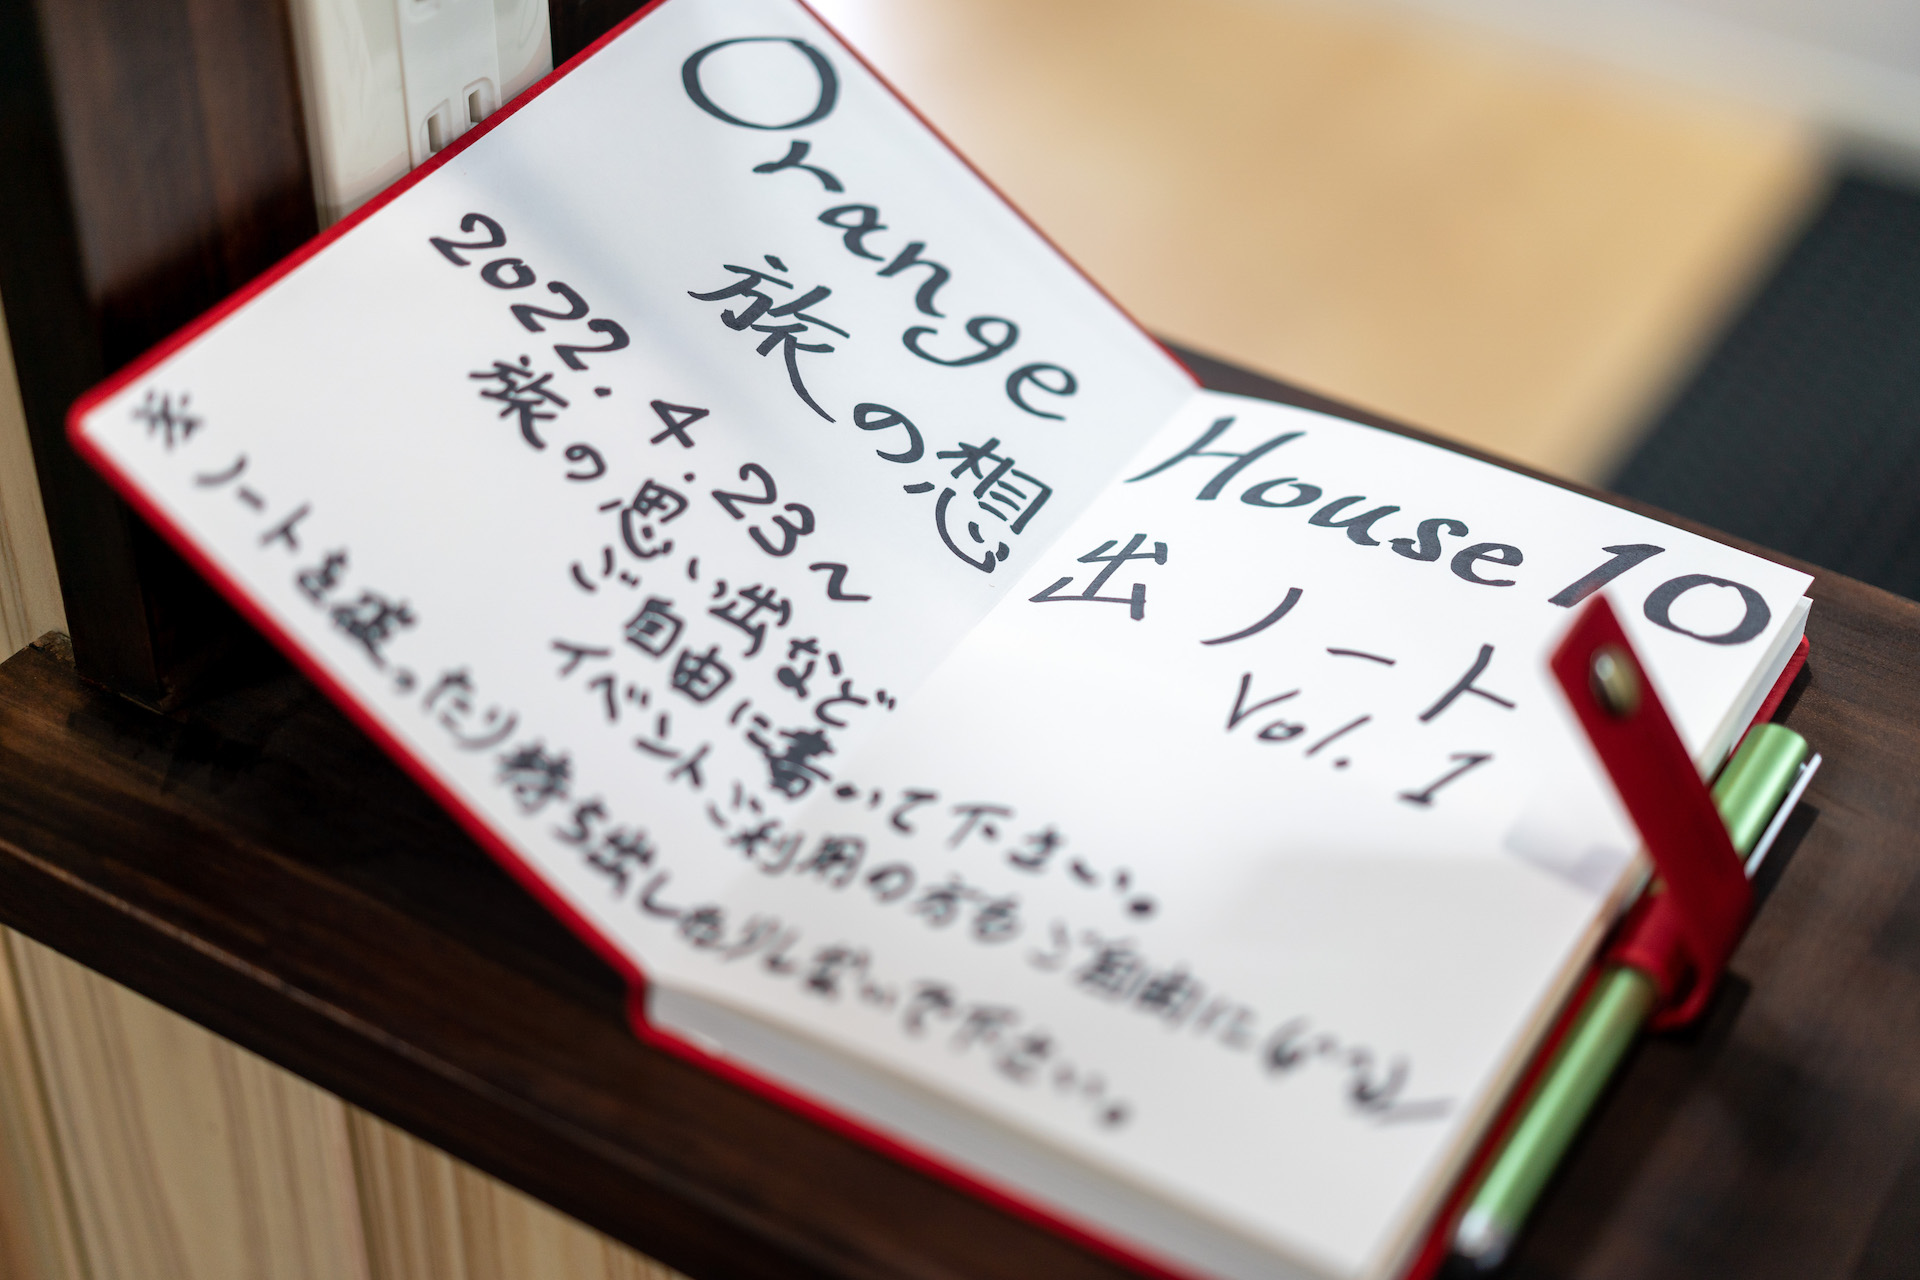 Orange House 10
旅の想出ノート
Vol. 1
2022. 4. 23〜
旅の思い出など
ご自由に書いて下さい。
イベントご利用の方もご自由に
※ ノートを破ったり持ち出したりしないで下さい。